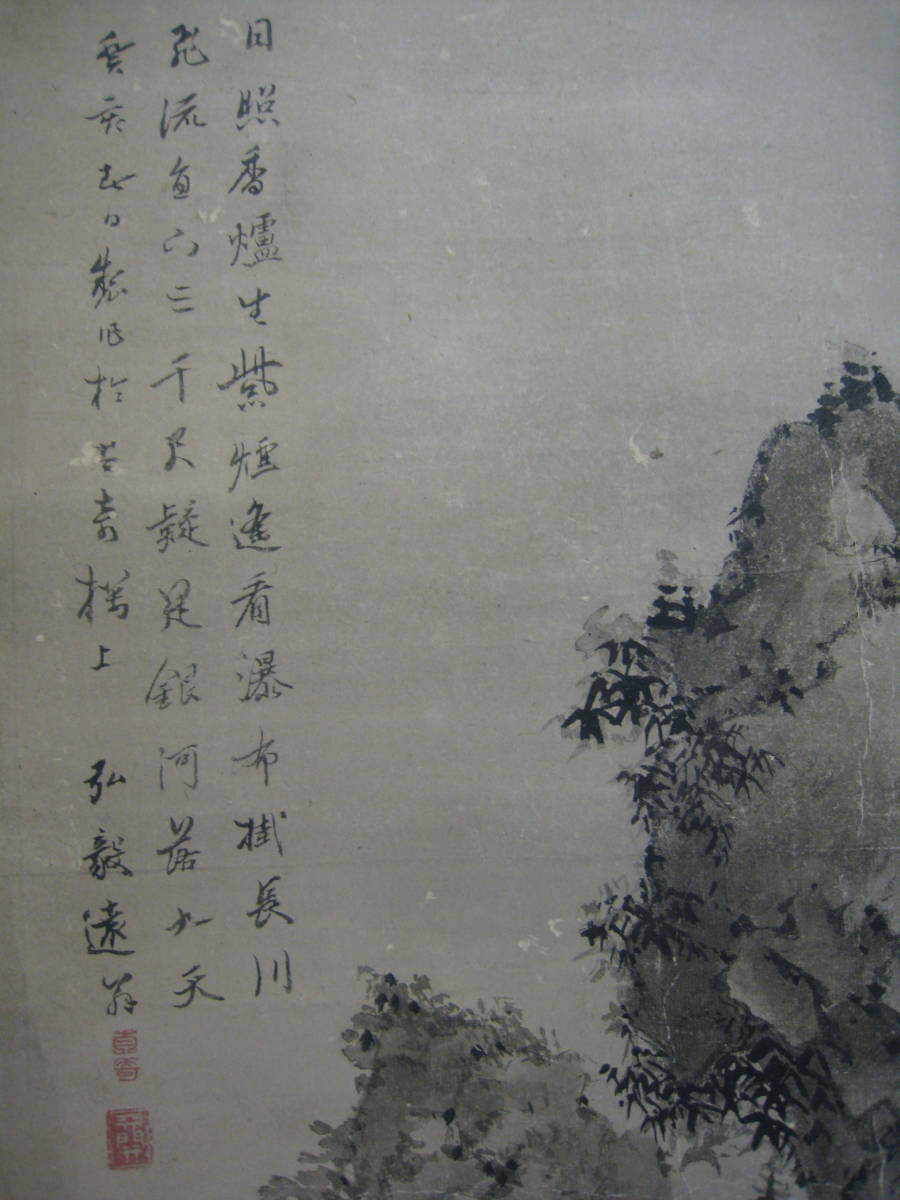 日照香爐生紫煙遙看瀑布掛長川
飛流直下三千尺疑是銀河落九天
癸亥春日作於樓上 弘毅遠翁